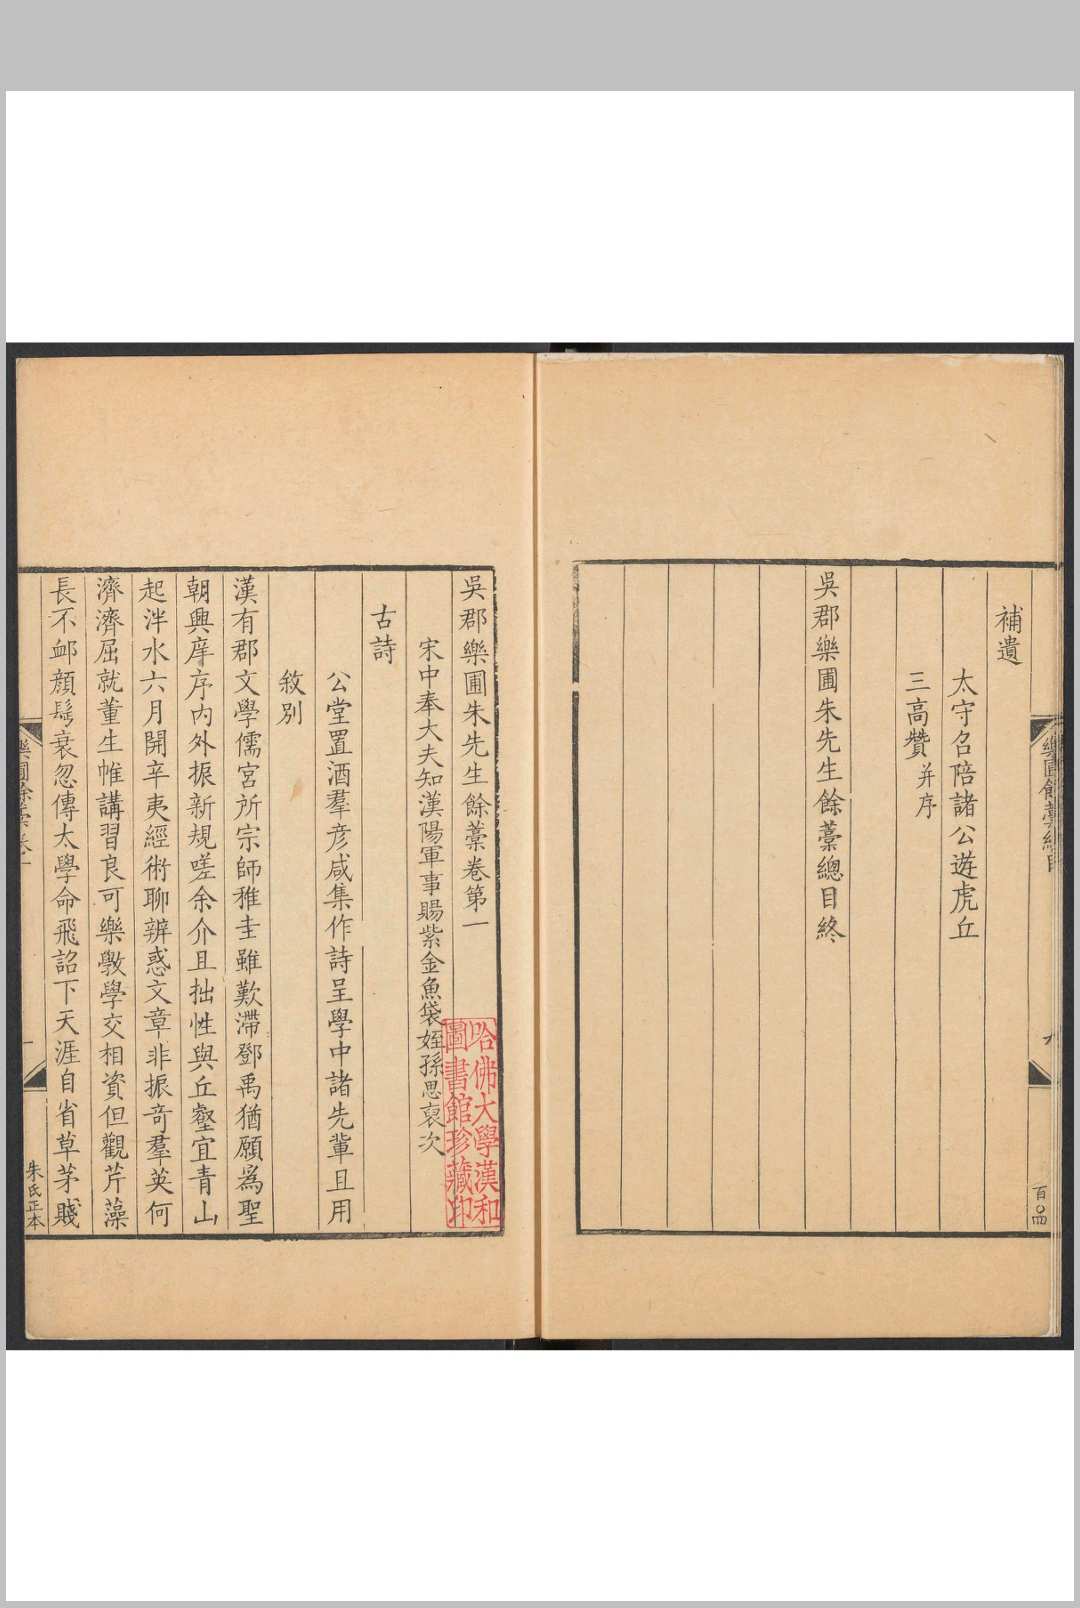 補遺
太守召陪諸公遊虎丘
三高贊并序
吳郡樂圃朱先生餘藁總目終
樂圃餘藁總目
九
百〇四
吳郡樂圃朱先生餘藁卷第一
宋中奉大夫知漢陽軍事賜紫金魚袋姪孫思裒次
古詩
公堂置酒羣彦咸集作詩呈學中諸先輩且用
敘別
漢有郡文學儒宮所宗師稚圭雖歎滯鄧禹猶願爲聖
朝興庠序内外振新規嗟余介且拙性與丘壑宜青山
起泮水六月開辛夷經術聊辨惑文章非振奇羣英何
濟濟屈就董生帷講習良可樂斆學交相資但觀芹藻
長不卹顔髩衰忽傳太學命飛詔下天涯自省草茅賤
朱氏正本
哈佛大學漢和
圖書館珍藏印